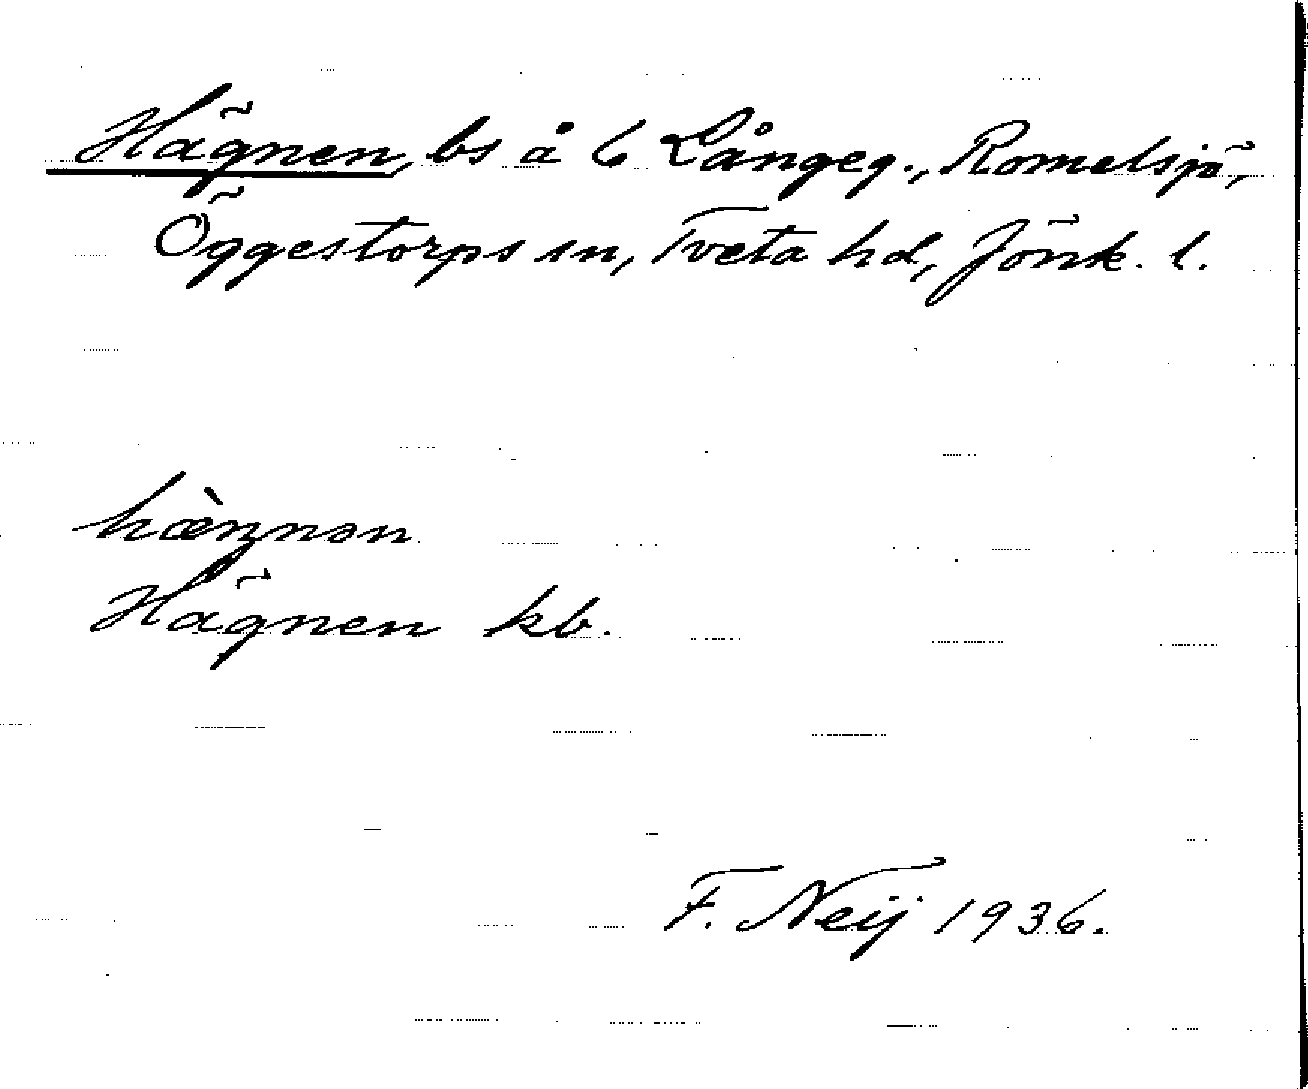 Hägnen, bs å 6 Långeg., Romelsjö,
Öggestorps sn, Tveta hd, Jönk. l.
hæ̀ŋnən
Hägnen kb.
F. Neij 1936.